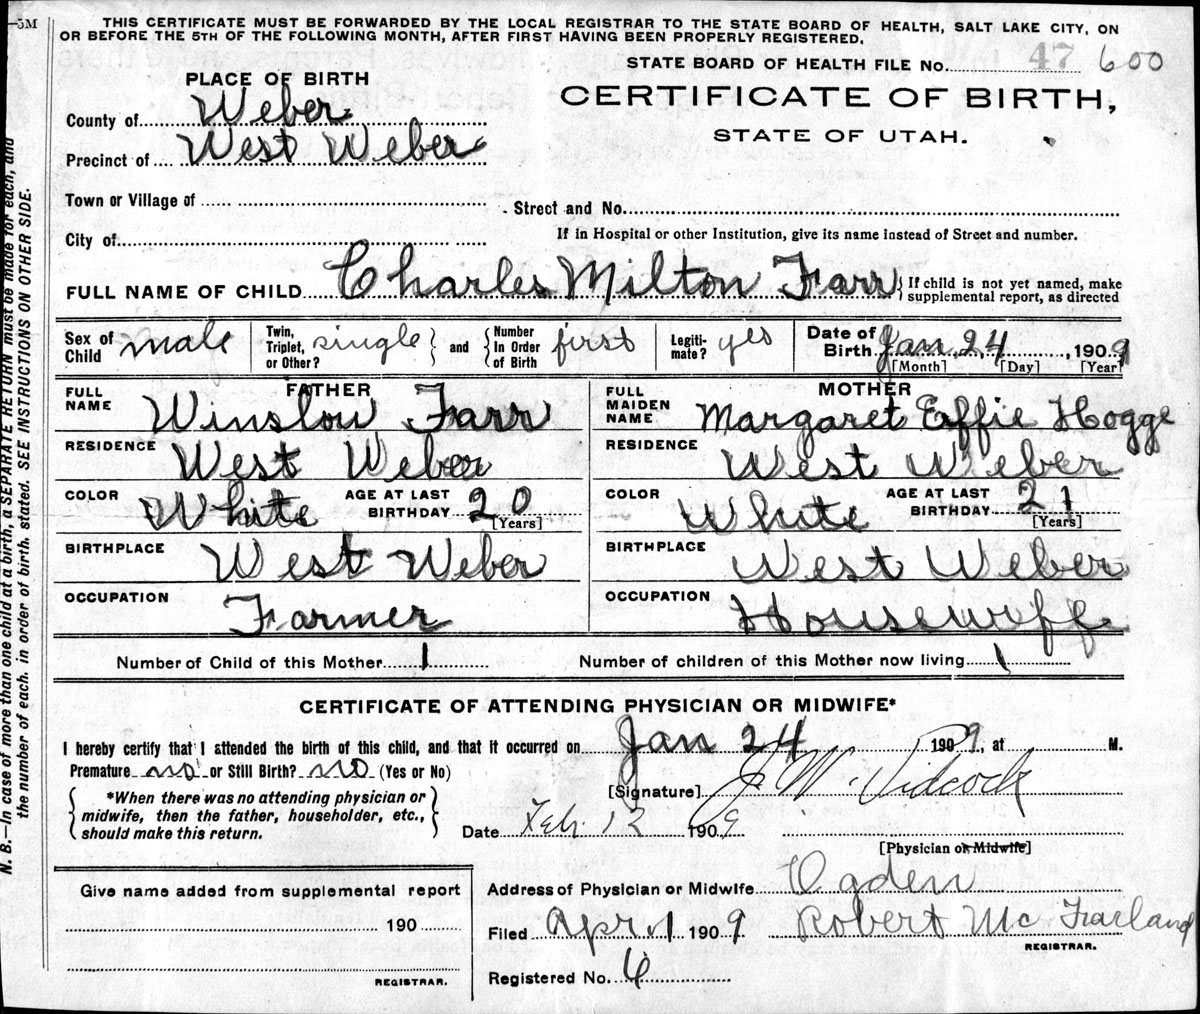 5M
THIS CERTIFICATE MUST BE FORWARDED BY THE LOCAL REGISTRAR TO THE STATE BOARD OF HEALTH, SALT LAKE CITY, ON
OR BEFORE THE 5TH OF THE FOLLOWING MONTH, AFTER FIRST HAVING BEEN PROPERLY REGISTERED.
STATE BOARD OF HEALTH FILE No. 47 600
PLACE OF BIRTH
CERTIFICATE OF BIRTH,
STATE OF UTAH.
County of Weber
Precinct of West Weber
Town or Village of
Street and No.
City of
If in Hospital or other Institution, give its name instead of Street and number.
FULL NAME OF CHILD Charles Milton Farr { If child is not yet named, make
supplemental report, as directed
Sex of Child male Twin, Triplet, or Other? single } and { Number In Order of Birth first Legiti-mate? yes Date of Birth Jan 24, 1909
[Month] [Day] [Year]
FATHER
FULL NAME Winslow Farr
RESIDENCE West Weber
COLOR White AGE AT LAST BIRTHDAY 20
[Years]
BIRTHPLACE West Weber
OCCUPATION Farmer
MOTHER
FULL MAIDEN NAME Margaret Effie Hogge
RESIDENCE West Weber
COLOR White AGE AT LAST BIRTHDAY 21
[Years]
BIRTHPLACE West Weber
OCCUPATION Housewiff
Number of Child of this Mother 1 Number of children of this Mother now living 1
CERTIFICATE OF ATTENDING PHYSICIAN OR MIDWIFE*
I hereby certify that I attended the birth of this child, and that it occurred on Jan 24 1909, at M.
Premature no or Still Birth? no (Yes or No)
[Signature] J W Pidcock
{ *When there was no attending physician or
midwife, then the father, householder, etc.,
should make this return. }
Date Feb. 12 1909
[Physician or Midwife]
Give name added from supplemental report
190
REGISTRAR.
Address of Physician or Midwife Ogden
Filed Apr. 1 1909 Robert McFarland
REGISTRAR.
Registered No. 6
N. B.—In case of more than one child at a birth, a SEPARATE RETURN must be made for each, and
the number of each, in order of birth, stated. SEE INSTRUCTIONS ON OTHER SIDE.